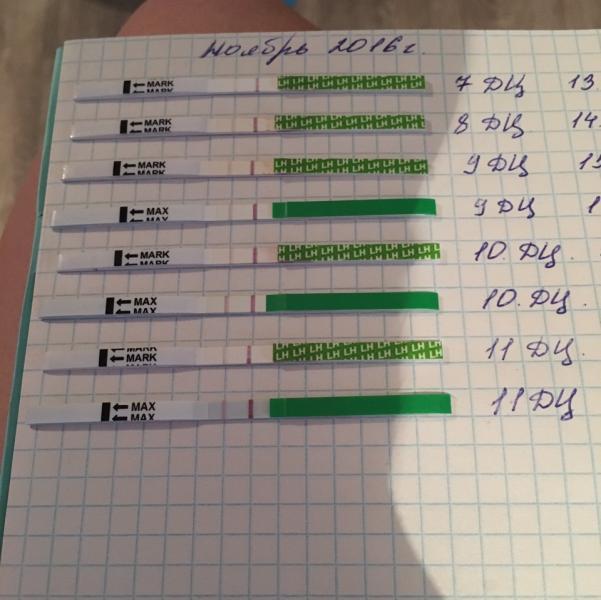 Ноябрь 2016г.
← MARK LH LH LH LH LH LH LH LH 7 ДЦ 13
← MARK LH LH LH LH LH LH LH LH 8 ДЦ 14
← MARK LH LH LH LH LH LH LH LH 9 ДЦ 15
← MAX 9 ДЦ 1
← MARK LH LH LH LH LH LH LH LH 10 ДЦ.
← MAX 10 ДЦ.
← MARK LH LH LH LH LH LH LH LH 11 ДЦ.
← MAX 11 ДЦ